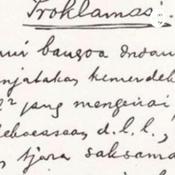 Proklamasi:
ami bangsa Indon
njatakan kemerdek
2 jang mengenai
keboesaan d.l.l.,
tjara saksama